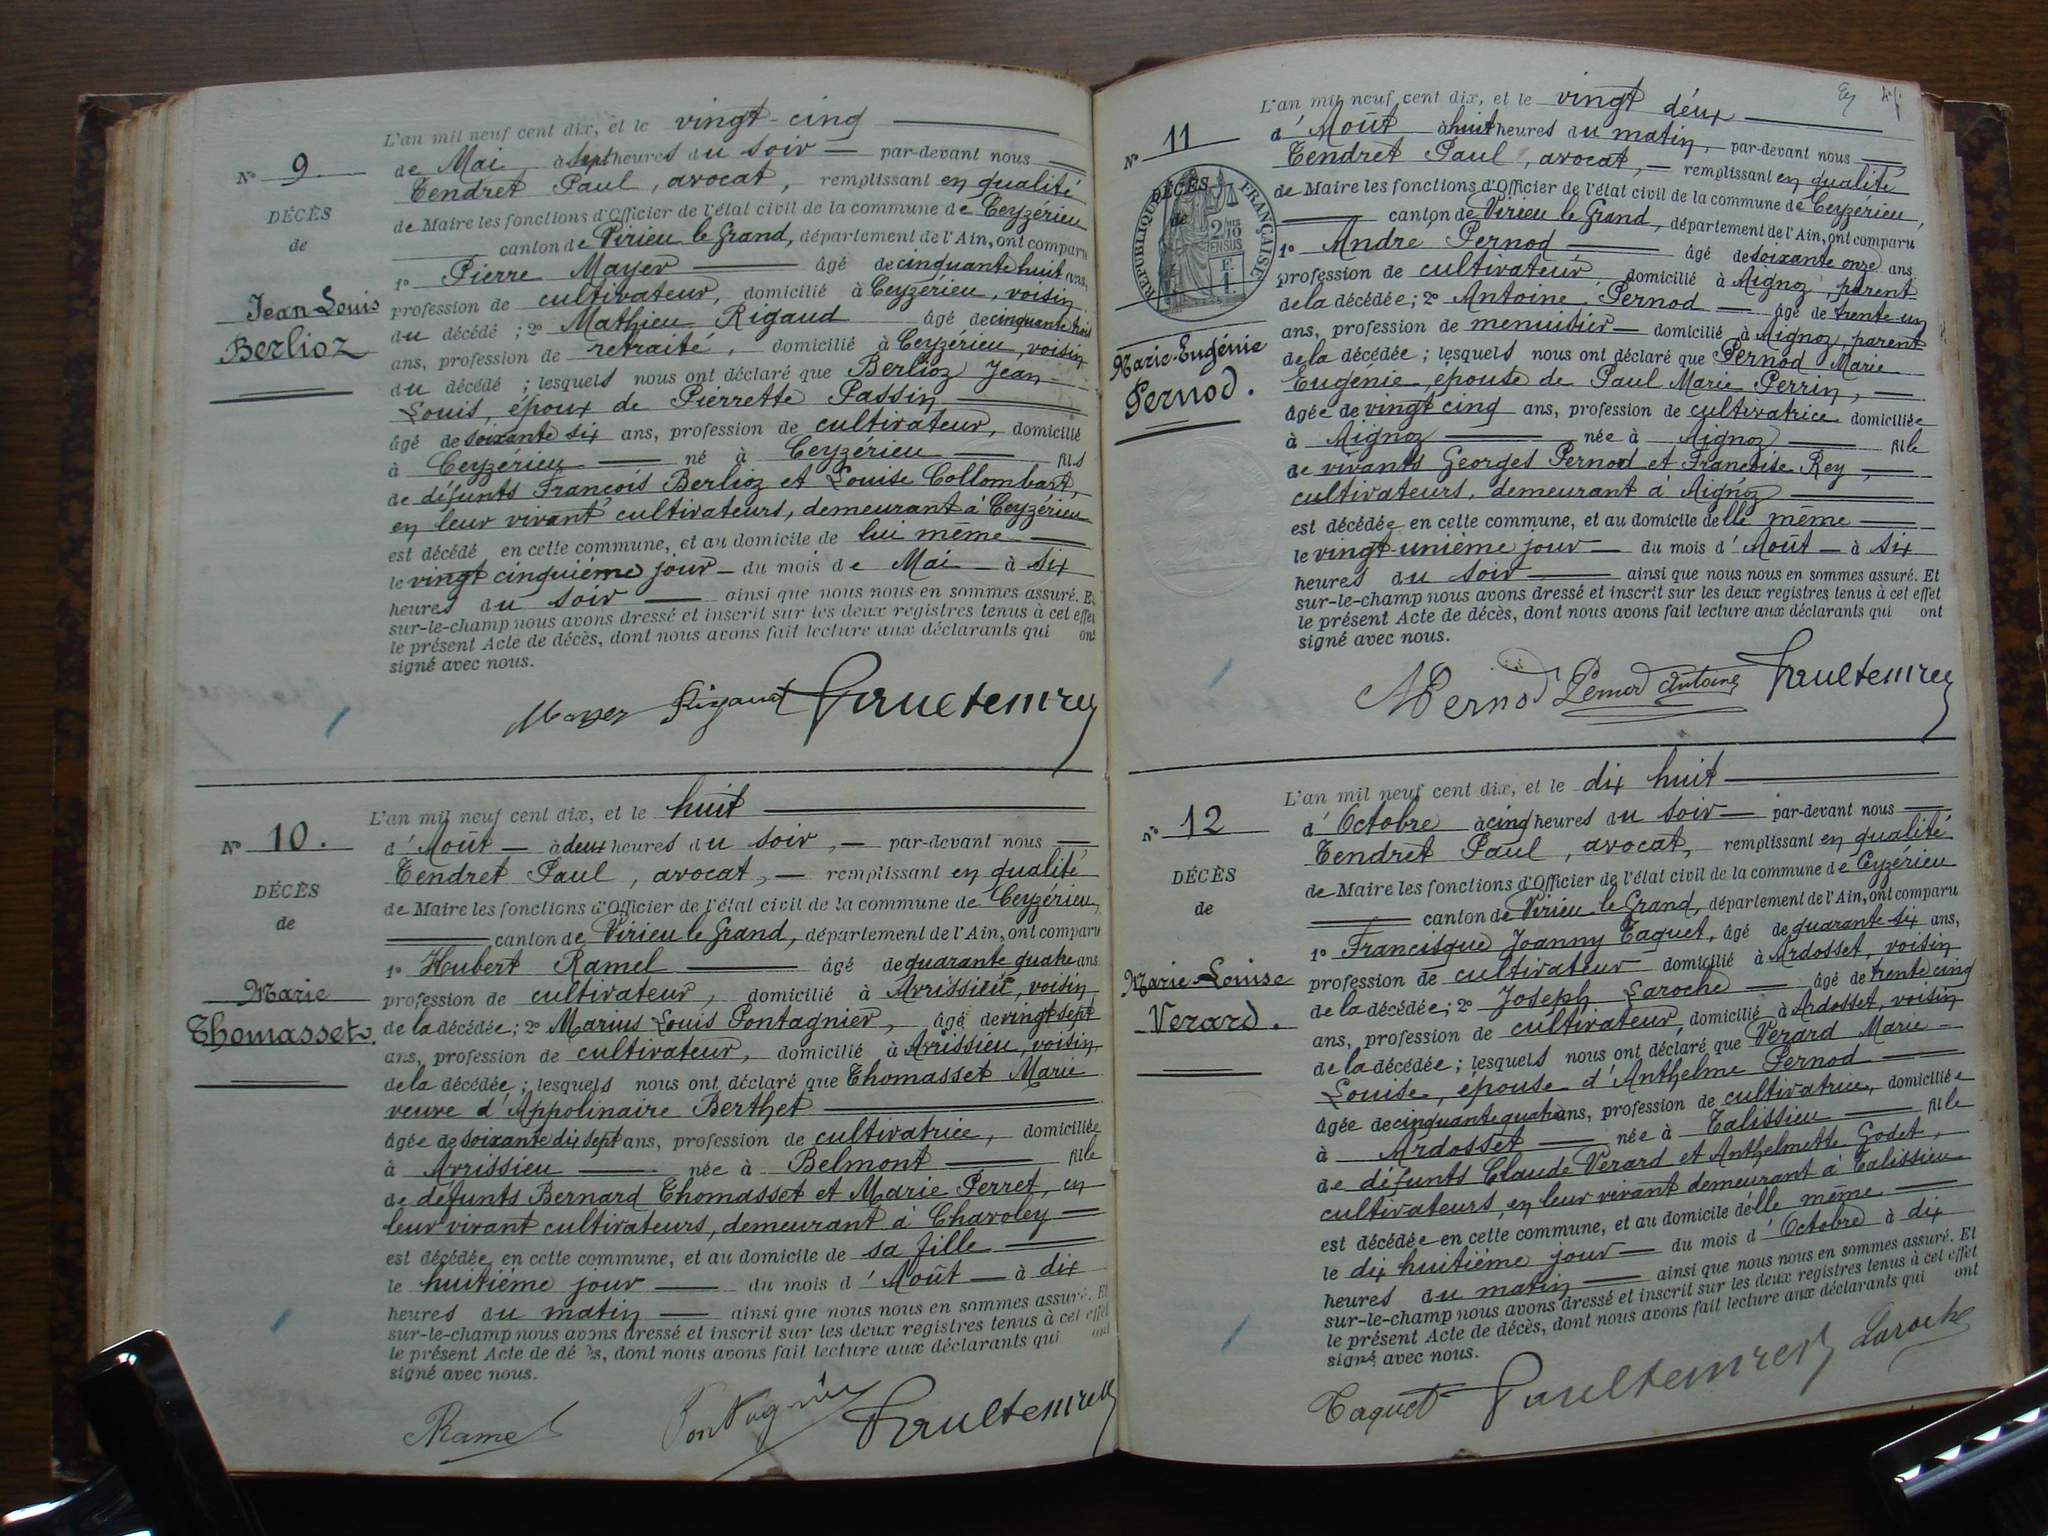 L'an mil neuf cent dix, et le vingt-cinq
N° 9.
de Mai à sept heures du soir par-devant nous
Tendret Paul, avocat, remplissant en qualité
DÉCÈS
de Maire les fonctions d'Officier de l'état civil de la commune de Ceyzérieu
de
canton de Virieu le Grand, département de l'Ain, ont comparu
1° Pierre Mayer âgé de cinquante huit ans,
Jean-Louis
profession de cultivateur, domicilié à Ceyzérieu, voisin
du décédé ; 2° Mathieu Rigaud âgé de cinquante trois
Berlioz
ans, profession de retraité, domicilié à Ceyzérieu, voisin
du décédé ; lesquels nous ont déclaré que Berlioz Jean-
Louis, époux de Pierrette Passin
âgé de soixante six ans, profession de cultivateur, domicilié
à Ceyzérieu né à Ceyzérieu fils
de défunts François Berlioz et Louise Collombart,
en leur vivant cultivateurs, demeurant à Ceyzérieu
est décédé en cette commune, et au domicile de lui même
le vingt cinquième jour du mois de Mai à six
heures du soir ainsi que nous nous en sommes assuré. Et
sur-le-champ nous avons dressé et inscrit sur les deux registres tenus à cet effet
le présent Acte de décès, dont nous avons fait lecture aux déclarants qui ont
signé avec nous.
Mayer Rigaud Paul Tendret
L'an mil neuf cent dix, et le huit
N° 10.
d'Août à deux heures du soir, par-devant nous
Tendret Paul, avocat, remplissant en qualité
DÉCÈS
de Maire les fonctions d'Officier de l'état civil de la commune de Ceyzérieu,
de
canton de Virieu le Grand, département de l'Ain, ont comparu
1° Hubert Ramel âgé de quarante quatre ans
Marie
profession de cultivateur, domicilié à Avrissieu, voisin
Thomasset.
de la décédée ; 2° Marius Louis Pontagnier, âgé de vingt sept
ans, profession de cultivateur, domicilié à Avrissieu, voisin
de la décédée ; lesquels nous ont déclaré que Thomasset Marie
veuve d'Appolinaire Berthet
âgée de soixante dix sept ans, profession de cultivatrice, domiciliée
à Avrissieu née à Belmont fille
de défunts Bernard Thomasset et Marie Perret, en
leur vivant cultivateurs, demeurant à Charoley
est décédée en cette commune, et au domicile de sa fille
le huitième jour du mois d'Août à dix
heures du matin ainsi que nous nous en sommes assuré. Et
sur-le-champ nous avons dressé et inscrit sur les deux registres tenus à cet effet
le présent Acte de décès, dont nous avons fait lecture aux déclarants qui ont
signé avec nous.
Ramel Pontagnier Paul Tendret
L'an mil neuf cent dix, et le vingt deux
N° 11
d'Août à huit heures du matin, par-devant nous
Tendret Paul, avocat, remplissant en qualité
DÉCÈS
de Maire les fonctions d'Officier de l'état civil de la commune de Ceyzérieu,
de
canton de Virieu le Grand, département de l'Ain, ont comparu
RÉPUBLIQUE FRANÇAISE
1° Andre Pernod âgé de soixante onze ans
profession de cultivateur domicilié à Aignoz, parent
de la décédée ; 2° Antoine Pernod âgé de trente un
ans, profession de menuisier domicilié à Aignoz, parent
Marie-Eugénie
de la décédée ; lesquels nous ont déclaré que Pernod Marie
Pernod.
Eugénie, épouse de Paul Marie Perrin,
âgée de vingt cinq ans, profession de cultivatrice domiciliée
à Aignoz née à Aignoz fille
de vivants Georges Pernod et Françoise Rey,
cultivateurs, demeurant à Aignoz
est décédée en cette commune, et au domicile d'elle même
le vingt-unième jour du mois d'Août à six
heures du soir ainsi que nous nous en sommes assuré. Et
sur-le-champ nous avons dressé et inscrit sur les deux registres tenus à cet effet
le présent Acte de décès, dont nous avons fait lecture aux déclarants qui ont
signé avec nous.
A Pernod Pernod Antoine Paul Tendret
L'an mil neuf cent dix, et le dix huit
N° 12
d'Octobre à cinq heures du soir par-devant nous
Tendret Paul, avocat, remplissant en qualité
DÉCÈS
de Maire les fonctions d'Officier de l'état civil de la commune de Ceyzérieu
de
canton de Virieu le Grand, département de l'Ain, ont comparu
1° Francisque Joanny Taquet, âgé de quarante six ans,
Marie-Louise
profession de cultivateur domicilié à Ardosset, voisin
Verard.
de la décédée ; 2° Joseph Laroche âgé de trente cinq
ans, profession de cultivateur, domicilié à Ardosset, voisin
de la décédée ; lesquels nous ont déclaré que Verard Marie-
Louise, épouse d'Anthelme Pernod
âgée de cinquante quatre ans, profession de cultivatrice, domiciliée
à Ardosset née à Talissieu fille
de défunts Claude Verard et Anthelmette Godet,
cultivateurs, en leur vivant demeurant à Talissieu
est décédée en cette commune, et au domicile d'elle même
le dix huitième jour du mois d'Octobre à dix
heures du matin ainsi que nous nous en sommes assuré. Et
sur-le-champ nous avons dressé et inscrit sur les deux registres tenus à cet effet
le présent Acte de décès, dont nous avons fait lecture aux déclarants qui ont
signé avec nous.
Taquet Paul Tendret Laroche